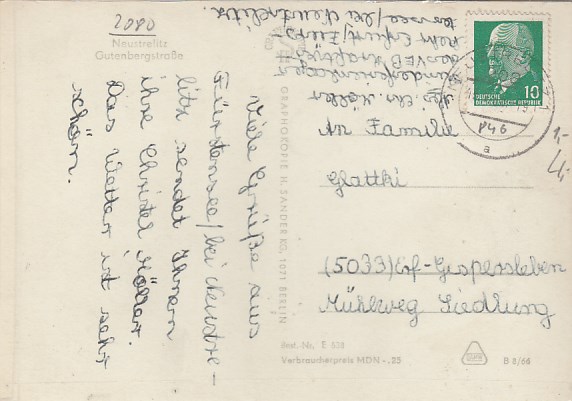 2080
Neustrelitz
Gutenbergstraße
Viele Grüße aus
Fürstensee/bei Neustre-
litz sendet Ihnen
ihre Christel Möller.
Das Wetter ist sehr
schön.
GRAPHOKOPIE H. SANDER KG, 1071 BERLIN
Möller
Kinderferienlager
des VEB
Erfurt, Fürs-
tensee/bei Neustrelitz
DEUTSCHE
DEMOKRATISCHE REPUBLIK
10
a
1,-
An Familie
Glattki
(5033) Erf-Gispersleben
Mühlweg Siedlung
Best.-Nr. E 633
Verbraucherpreis MDN -,25
B 8/66